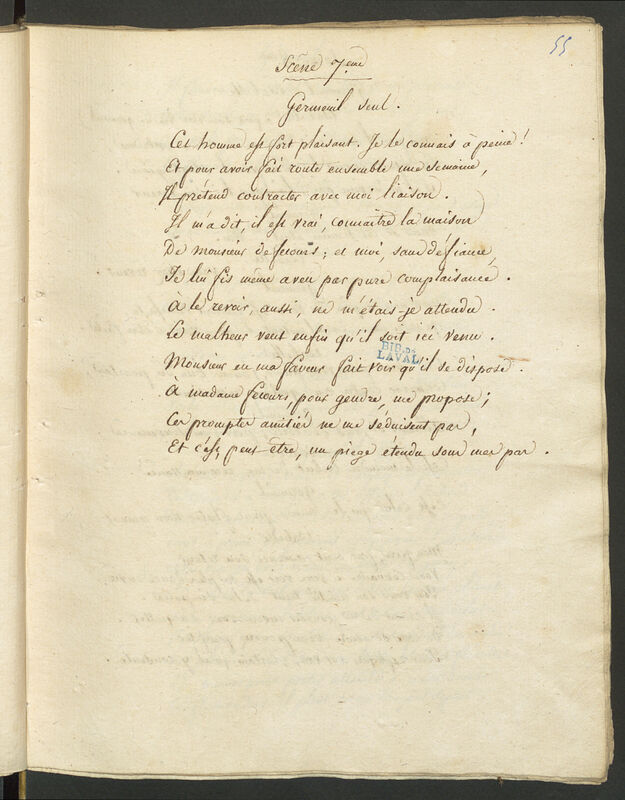 55
Scène 7.eme
Germeuil seul.
Cet homme est fort plaisant. Je le connais à peine!
Et pour avoir fait route ensemble une semaine,
Il prétend contracter avec moi liaison.
Il m'a dit, il est vrai, connaître la maison
De monsieur de fecours; et moi, sans défiance,
Je lui fis même aveu par pure complaisance.
A le revoir, aussi, ne m'étais-je attendu.
Le malheur veut enfin qu'il soit ici venu.
BIB. DE
LAVAL
Monsieur en ma faveur fait voir qu'il se dispose.
À madame fecours, pour gendre, me propose;
Ces promptes amitiés ne me séduisent pas,
Et c'est, peut-etre, un piege étendu sous mes pas.